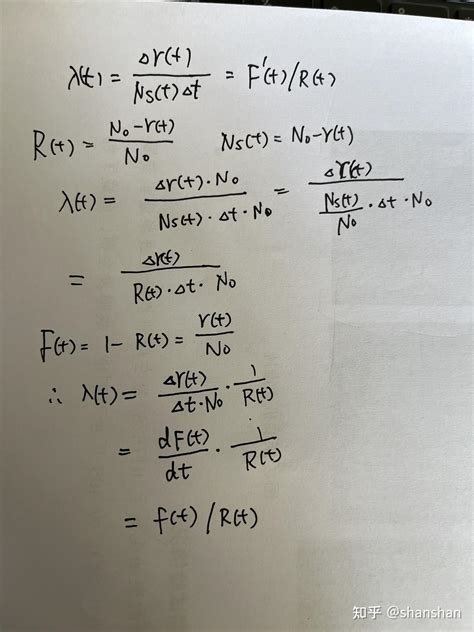 λ(t) = Δr(t) / Ns(t)Δt = F'(t)/R(t)
R(t) = N₀-r(t) / N₀   Ns(t) = N₀-r(t)
λ(t) = Δr(t)·N₀ / Ns(t)·Δt·N₀ = Δr(t) / Ns(t)/N₀ ·Δt·N₀
= Δr(t) / R(t)·Δt·N₀
F(t) = 1- R(t) = r(t) / N₀
∴ λ(t) = Δr(t) / Δt·N₀ · 1 / R(t)
= dF(t) / dt · 1 / R(t)
= f(t) / R(t)
知乎 @shanshan